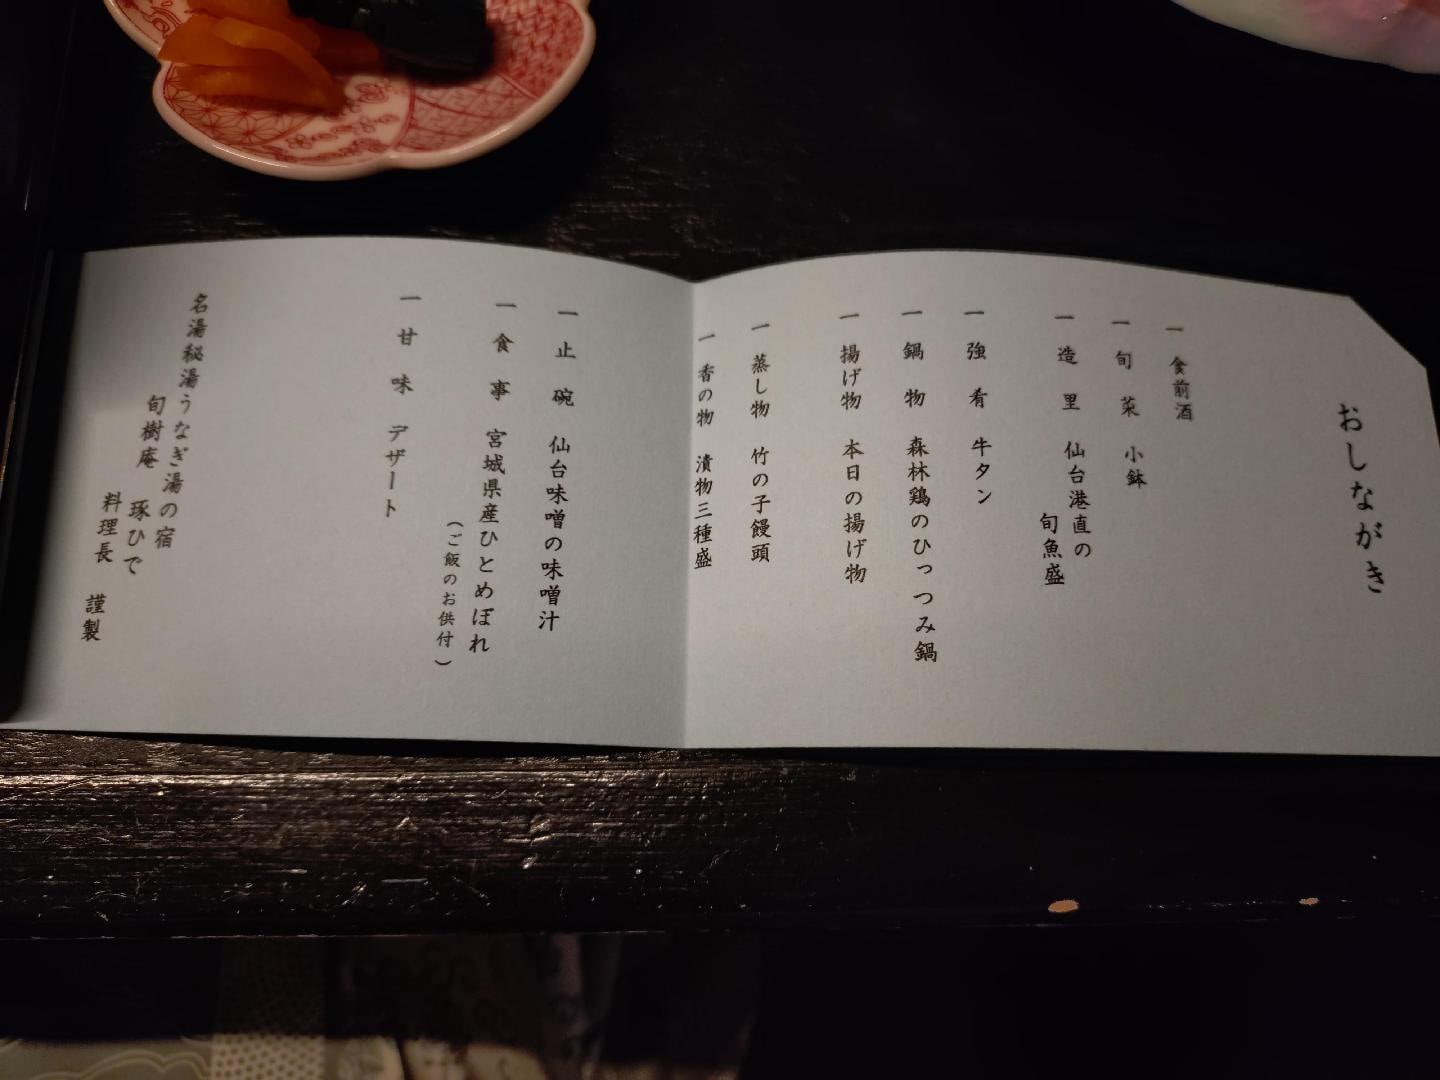 おしながき
一 食前酒
一 旬菜 小鉢
一 造里 仙台港直の
旬魚盛
一 強肴 牛タン
一 鍋物 森林鶏のひっつみ鍋
一 揚げ物 本日の揚げ物
一 蒸し物 竹の子饅頭
一 香の物 漬物三種盛
一 止碗 仙台味噌の味噌汁
一 食事 宮城県産ひとめぼれ
(ご飯のお供付)
一 甘味 デザート
名湯秘湯うなぎ湯の宿
旬樹庵 琢ひで
料理長 謹製